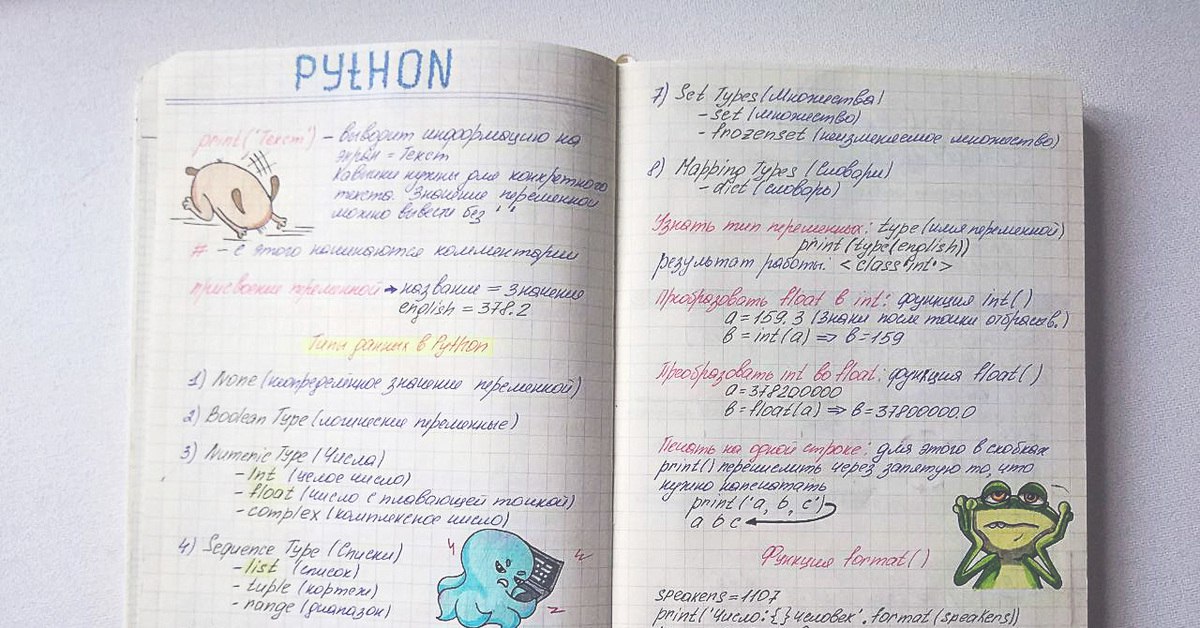 PYtHON
print('Текст') – выводит информацию на
экран = Текст
Кавычки нужны для конкретного
текста. Значение переменной
можно вывести без ' '
# – с этого начинаются комментарии
присвоение переменной → название = значение
english = 378.2
Типы данных в Python
1) None (неопределённое значение переменной)
2) Boolean Type (логические переменные)
3) Numeric Type (Числа)
- Int (целое число)
- float (число с плавающей точкой)
- complex (комплексное число)
4) Sequence Type (Списки)
- list (список)
- tuple (кортеж)
- range (диапазон)
7) Set Types (Множества)
- set (множество)
- frozenset (неизменяемое множество)
8) Mapping Types (Словари)
- dict (словарь)
Узнать тип переменных: type(имя переменной)
print(type(english))
результат работы: <class 'int'>
Преобразовать float в int: функция int()
a = 159.3 (Знаки после точки отбрасыв.)
b = int(a) => b = 159
Преобразовать int во float: функция float()
a = 378200000
b = float(a) => b = 37800000.0
Печать на одной строке: для этого в скобках
print() перечислить через запятую то, что
нужно напечатать
print('a, b, c')
a b c
Функция format()
speakers = 1107
print('Число: {} человек'.format(speakers))